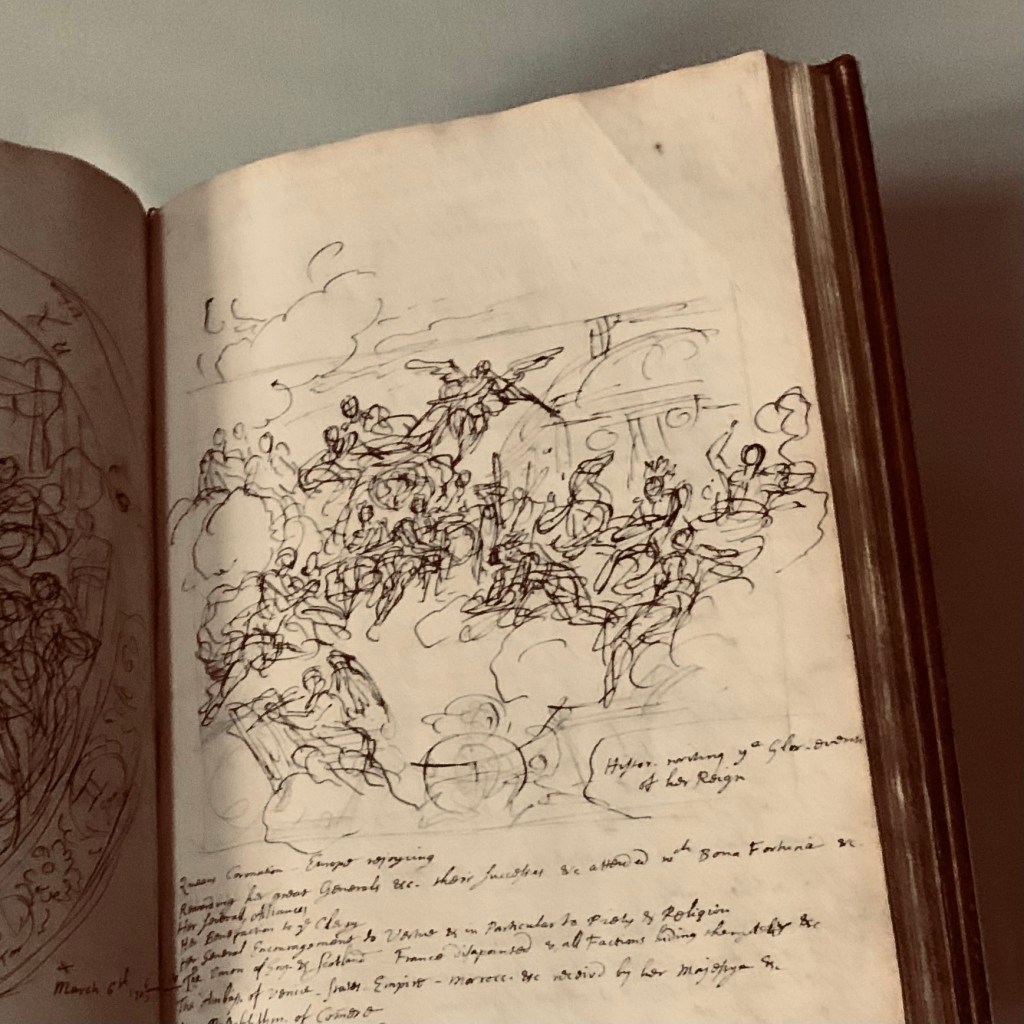 Histor. writing yᵉ Glor. events
of her Reign
Queens Coronation - Europe rejoycing
Rewarding her great Generals &c. their Successes &c attended wth Bona Fortuna &c.
Her Several Alliances
Her Benefaction to ye Clergy
Her General Encouragement to Vertue & in Particular to Piety & Religion
The Union of & Scotland France disapointed & all Factions hiding themselves &c
The Ambas. of Venice - States - Empire - Morocc. &c receivd by her Majestye &c
of Comerce
March 6th